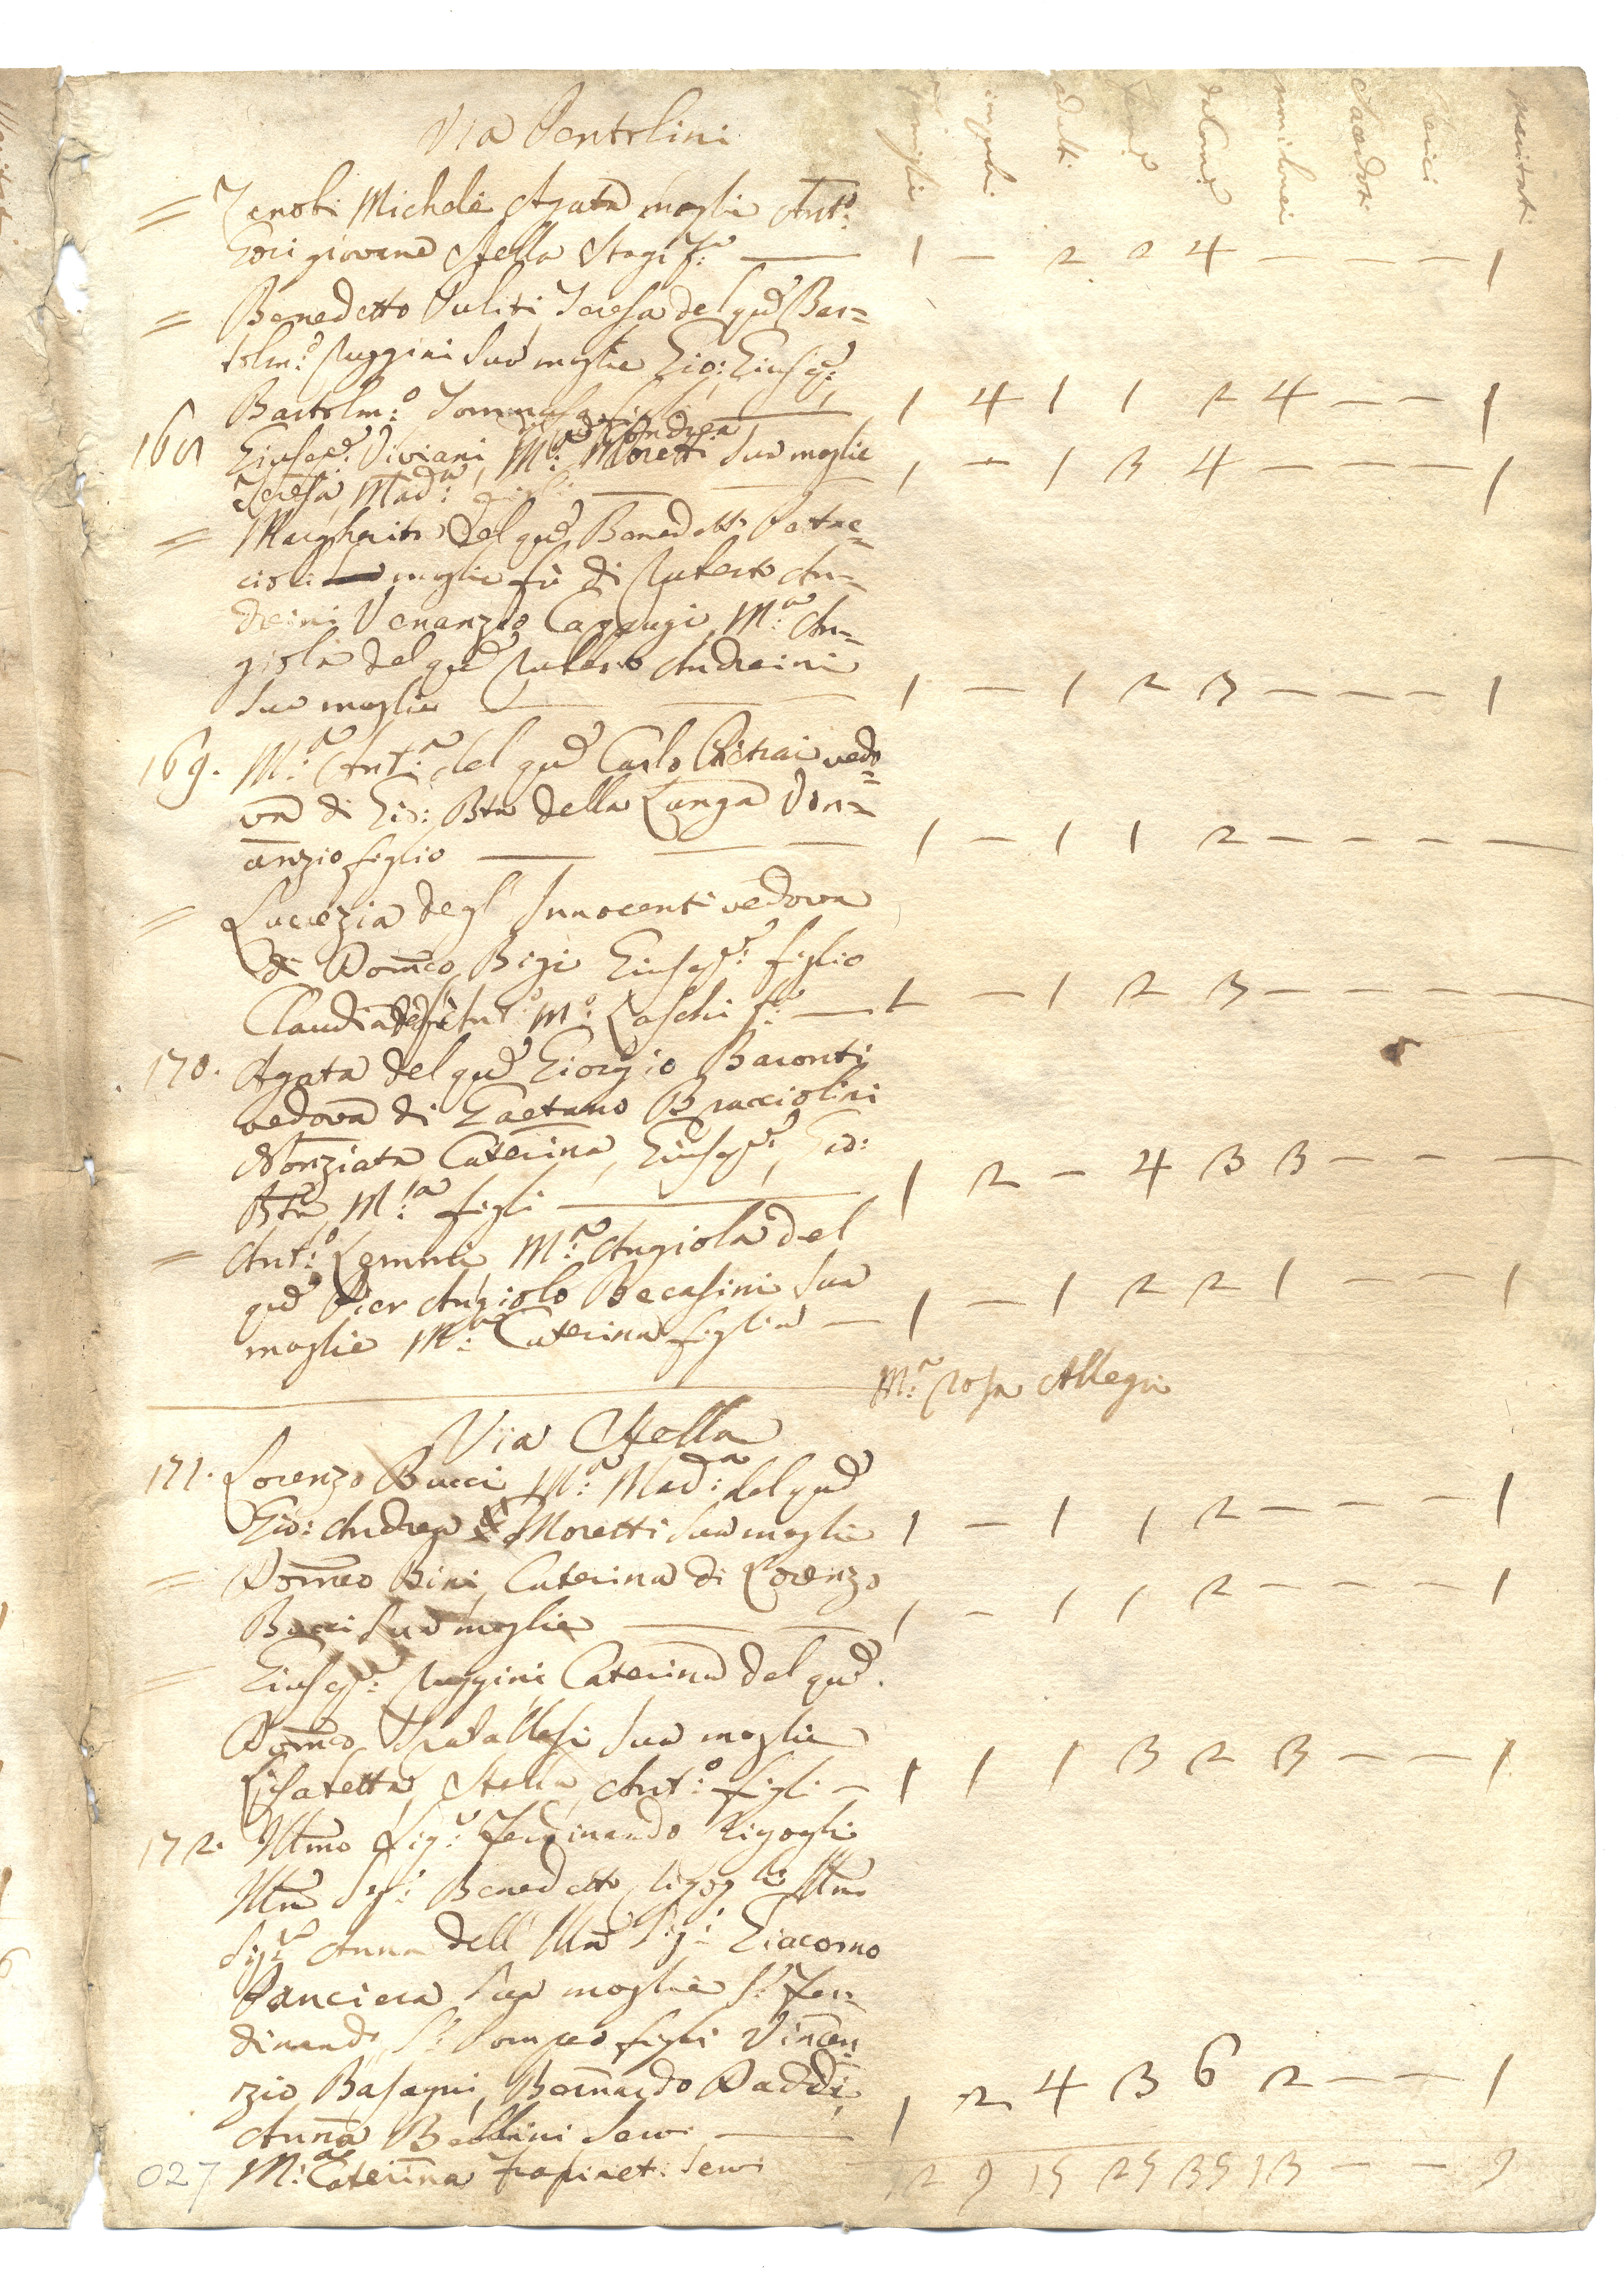 famiglie impuberi adulti femine da Com: non Com: Sacerdoti Cherici Maritati
Via Pentolini
= Zenobi Michele Agata moglie Ant.o
Gori giovane Stella Stagi f.a — 1 — 2 2 4 — — — 1
= Benedetto Puliti Teresa del qd Bar=
tolm:o Ruggini Sua moglie Gio: Gius.e:
Bartolm:o Tommaso figli — 1 4 1 1 2 4 — — 1
168 Gius.e: Viviani M:a di Andrea Moretti Sua moglie
Teresa, Mad:a figli — — 1 — 1 3 4 — — — 1
= Margherita del qd Benedetto
cioli moglie fù di Ruberto An=
dreini Venanzio M:a An=
giola del qd Ruberto Andreini
Sua moglie — — 1 — 1 2 3 — — — 1
169. M:a Ant:a del qd Carlo vedo=
va di Gio: Bta della Lunga Ven=
anzio figlio — — — 1 — 1 1 2 — — — —
= Lucrezia degl' Innocenti vedova
di Domco Bigi Gius.e: figlio
Claudia Ant:o M:o Laschi f:a — 1 — 1 2 3 — — — —
170. Agata del qd Giorgio Baronti
vedova di Gaetano Bracciolini
Nonziata Caterina, Gius.e:, Gio:
Bta M:a figli — 1 2 — 4 3 3 — — —
= Ant:o Lemmi M:a Angiola del
qd Pier Angiolo Becasini Sua
moglie M:a Caterina figlia — 1 — 1 2 2 1 — — 1
M:a Rosa Allegri
Via Stella
171. Lorenzo Bucci M:a Mad:a del qd
Gio: Andrea Moretti Sua moglie 1 — 1 1 2 — — — 1
= Domco Bini Caterina di Lorenzo
Bucci Sua moglie — — 1 — 1 1 2 — — — 1
= Gius.e: Ruggini Caterina del qd.
Domco Spadallesi Sua moglie
Lisabetta, Stella, Ant:o figli — 1 1 1 3 2 3 — — 1
172. Illmo Sig:r Ferdinando Rigogli
Illmo Sig:r Benedetto Rigogli Illma
Sig:ra Anna dell' Illmo Sig:r Giacomo
Panciera Sua moglie S:r Fer=
dinando, S:r Pompeo figli Vincen=
zio Basagni, Bernardo Daddi,
Anna Bellini Serv: — 1 2 4 3 6 2 — — 1
027 M:a Caterina Serv: 12 9 15 25 35 13 — — 9